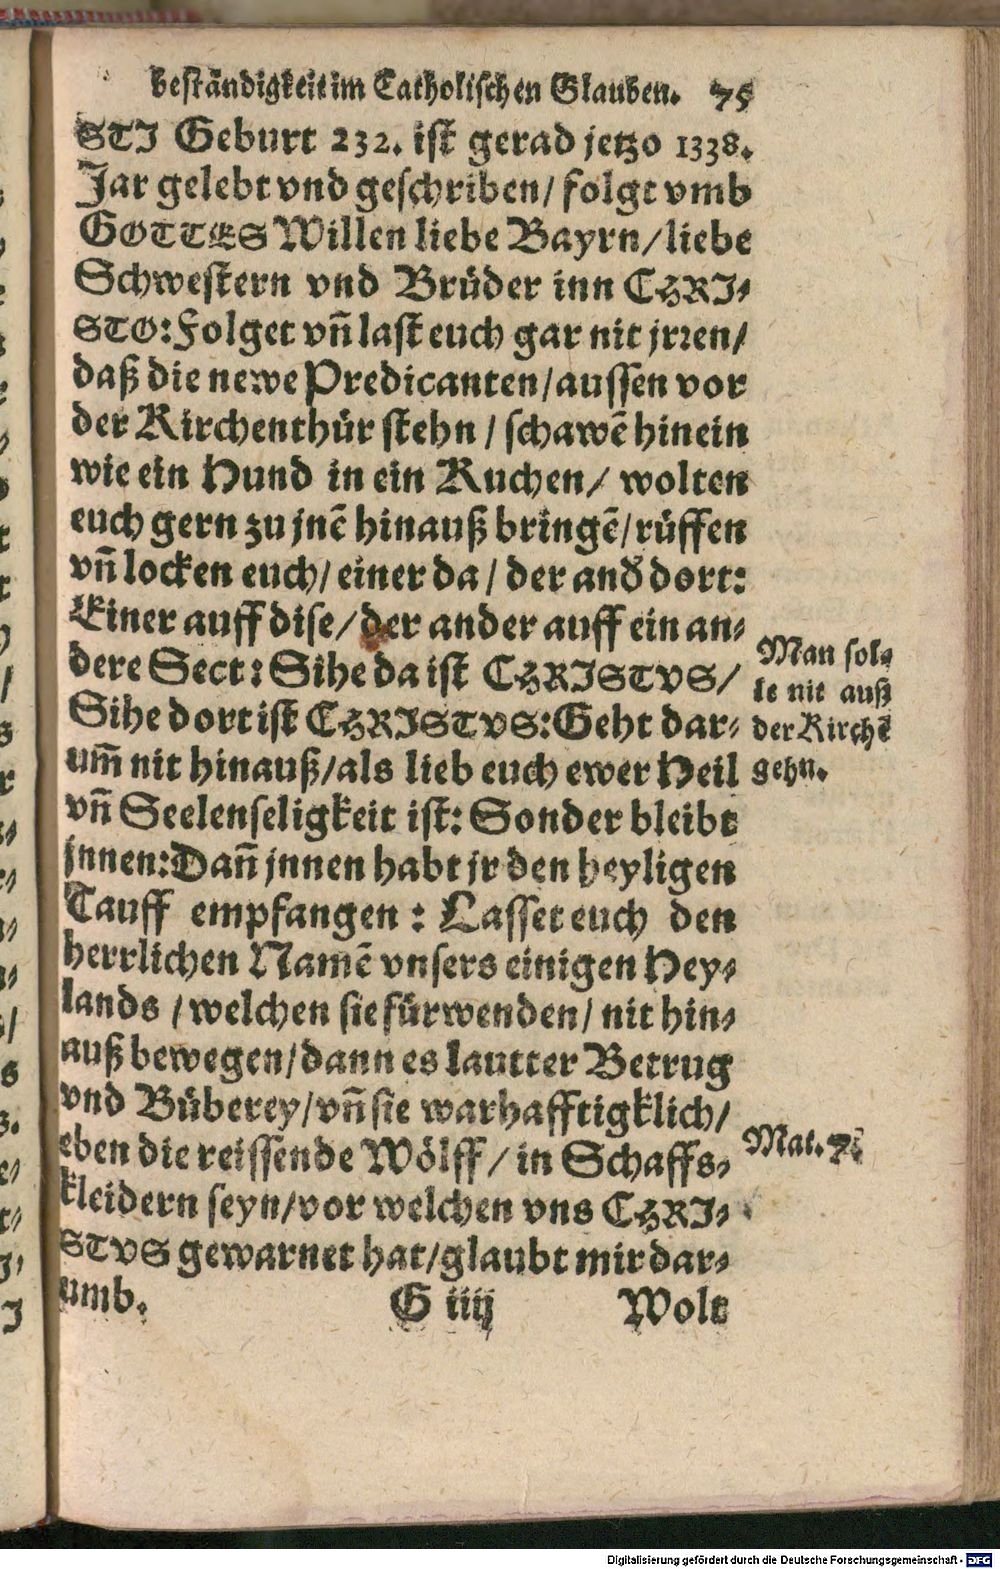 beständigkeit im Catholischen Glauben. 75
STI Geburt 232. ist gerad jetzo 1338.
Jar gelebt vnd geschriben/ folgt vmb
GOTTES Willen liebe Bayrn/ liebe
Schwestern vnd Brüder inn CHRI-
STO: Folget vñ last euch gar nit jrꝛen/
daß die newe Predicanten/ aussen vor
der Kirchenthür stehn / schawẽ hinein
wie ein Hund in ein Kuchen/ wolten
euch gern zu jnẽ hinauß bringẽ/ rüffen
vñ locken euch/ einer da / der and̕ dort:
Einer auff dise/ der ander auff ein an-
dere Sect: Sihe da ist CHRISTVS/
Sihe dort ist CHRISTVS: Geht dar-
um̃ nit hinauß/ als lieb euch ewer Heil
vñ Seelenseligkeit ist: Sonder bleibt
jnnen: Dañ jnnen habt jr den heyligen
Tauff empfangen : Lasset euch den
herrlichen Namẽ vnsers einigen Hey-
lands / welchen sie fürwenden/ nit hin-
auß bewegen/ dann es lautter Betrug
vnd Büberey/ vñ sie warhafftigklich/
eben die reissende Wölff / in Schaffs-
kleidern seyn/ vor welchen vns CHRI-
STVS gewarnet hat/ glaubt mir dar-
umb.
G iiij
Wolt
Man sol-
le nit auß
der Kirchẽ
gehn.
Mat. 7.
Digitalisierung gefördert durch die Deutsche Forschungsgemeinschaft - DFG